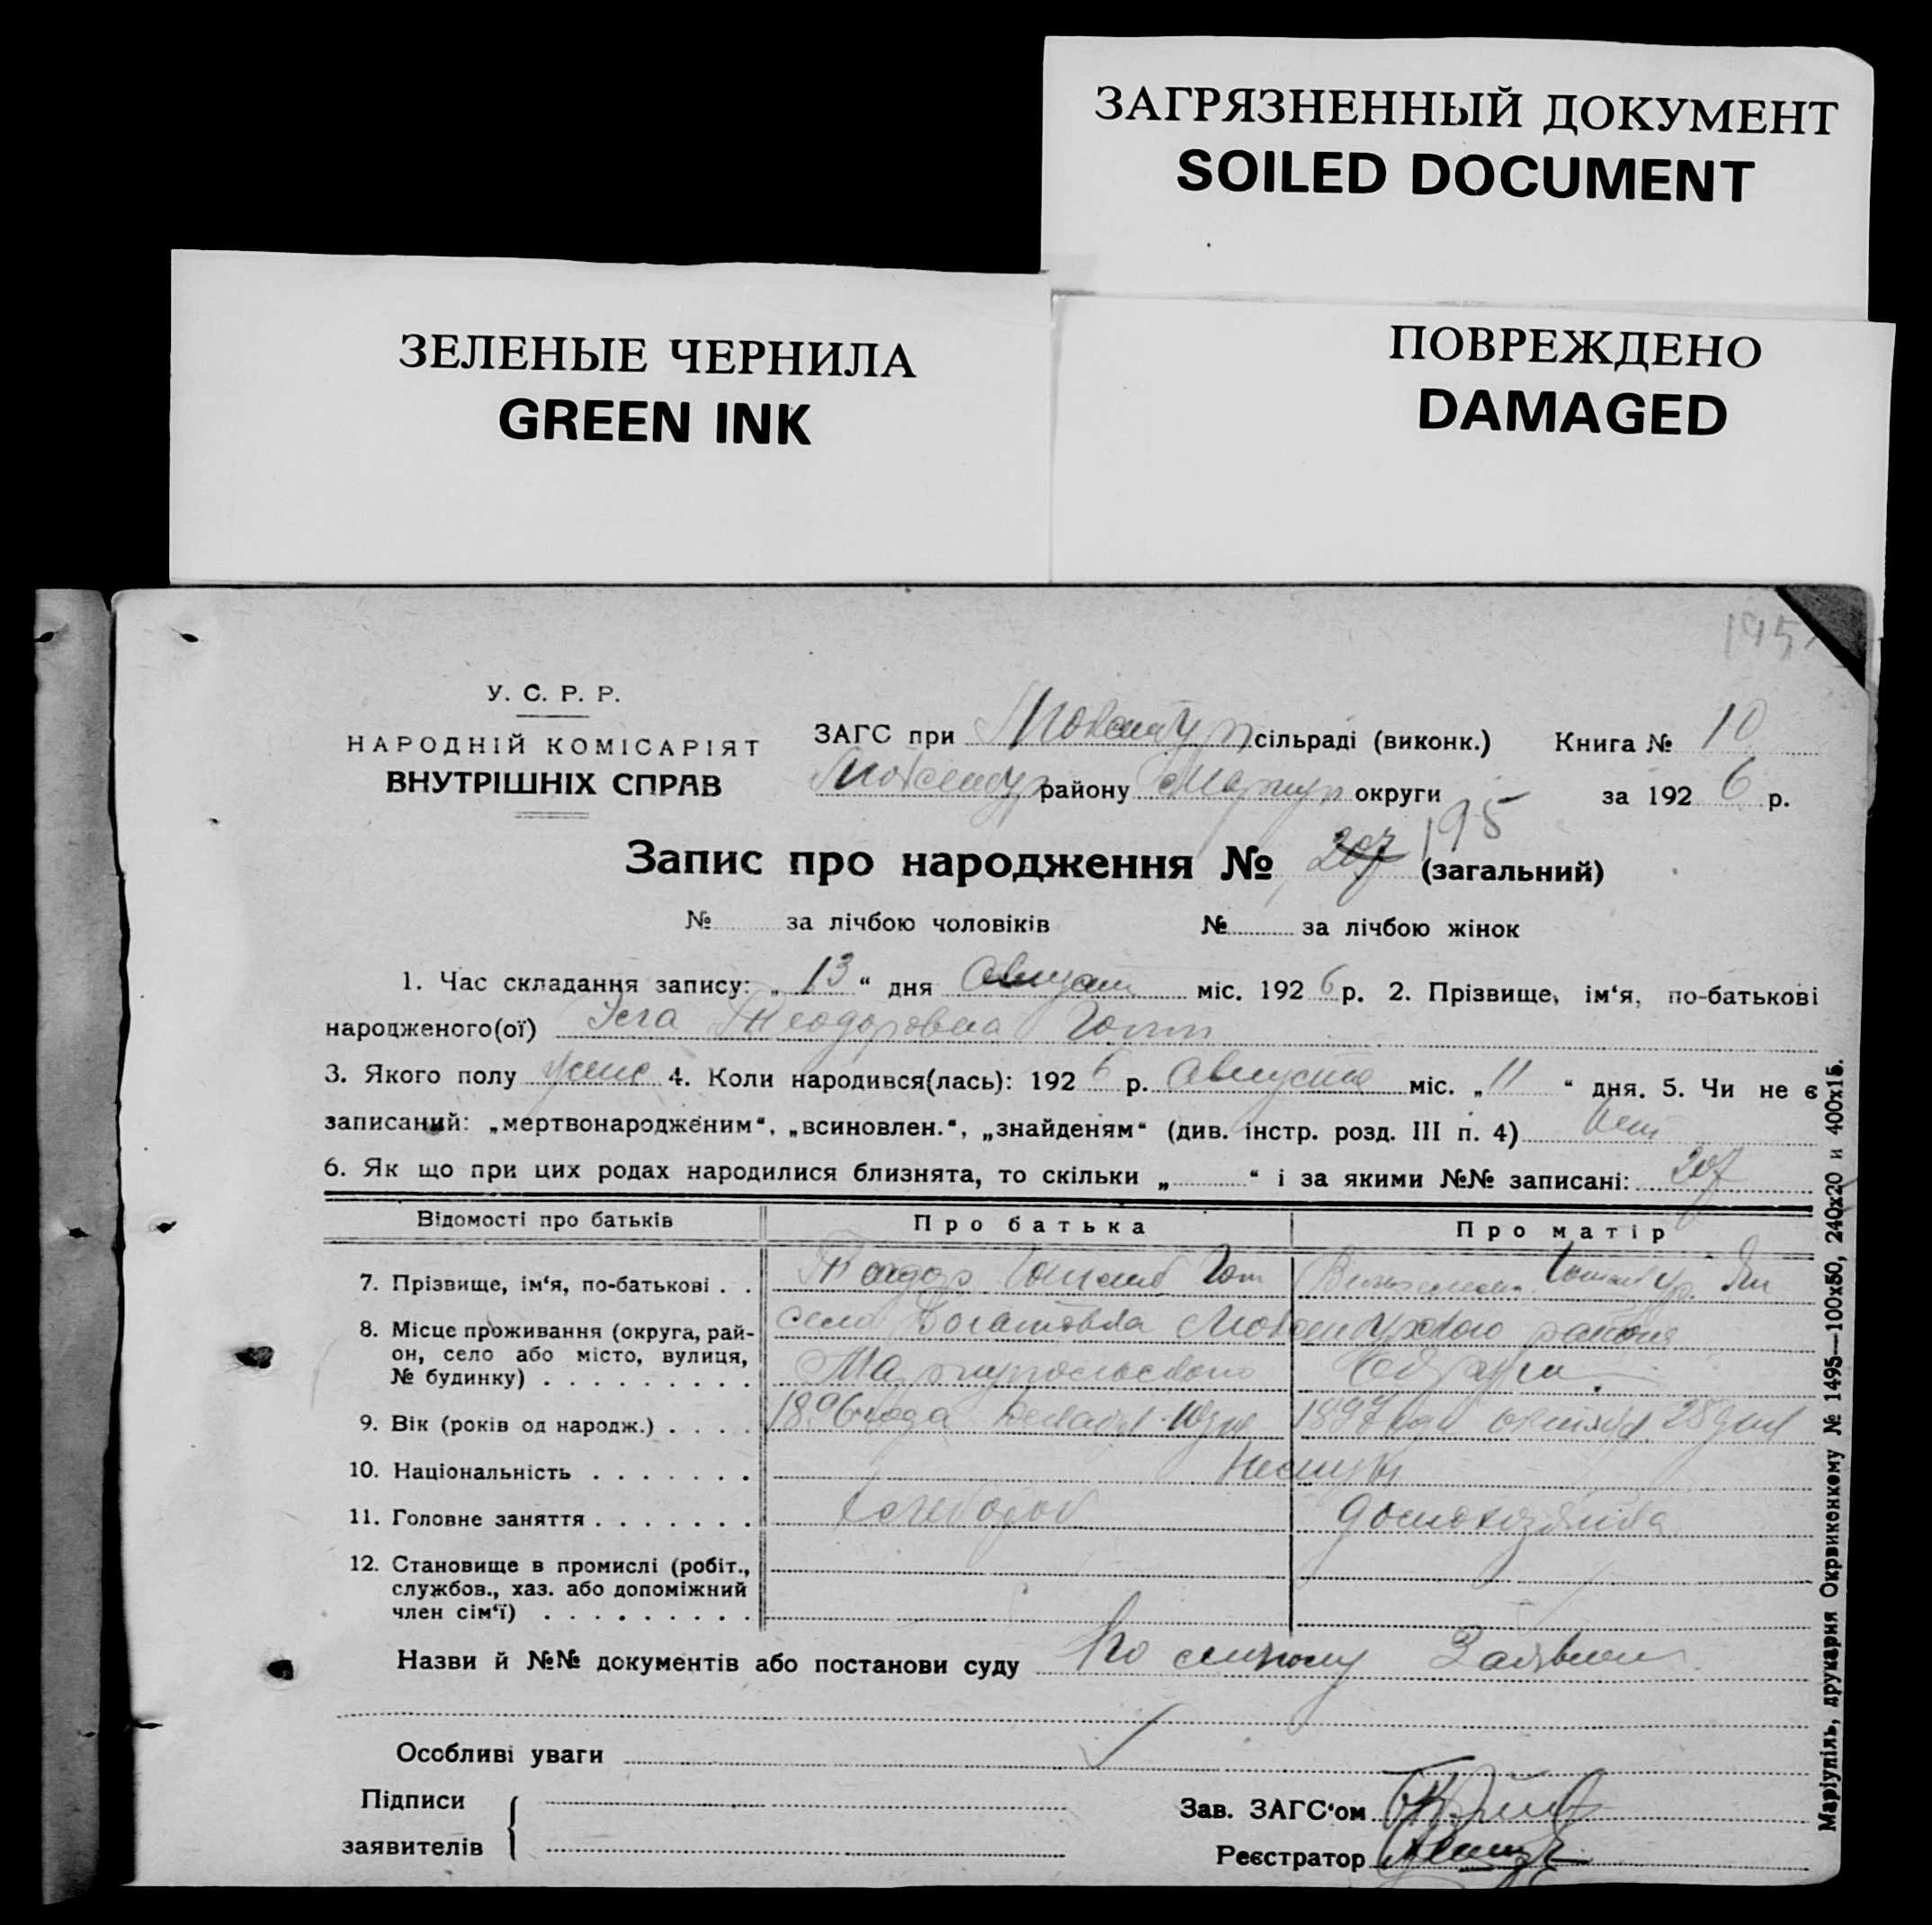 ЗАГРЯЗНЕННЫЙ ДОКУМЕНТ
SOILED DOCUMENT
ЗЕЛЕНЫЕ ЧЕРНИЛА
GREEN INK
ПОВРЕЖДЕНО
DAMAGED
195
У. С. Р. Р.
НАРОДНІЙ КОМІСАРІЯТ
ВНУТРІШНІХ СПРАВ
ЗАГС при сільраді (виконк.) Книга № 10
району Мариуп округи за 192 6 р.
Запис про народження № 207 195 (загальний)
№ за лічбою чоловіків № за лічбою жінок
1. Час складання запису: „ 13 “ дня Август міс. 192 6 р. 2. Прізвище, ім‘я, по-батькові
народженого(ої) Теодоровна Готт
3. Якого полу женс 4. Коли народився(лась): 192 6 р. Августа міс. „ 11 “ дня. 5. Чи не є
записаний: „мертвонародженим“, „всиновлен.“, „знайденям“ (див. інстр. розд. III п. 4) Нет
6. Як що при цих родах народилися близнята, то скільки „ “ і за якими №№ записані: 207
Відомості про батьків Про батька Про матір
7. Прізвище, ім‘я, по-батькові . . Теодор Готт
8. Місце проживання (округа, рай-
он, село або місто, вулиця,
№ будинку) . . . . . . . . .
село Богатовка района
Мариупольского Округи
9. Вік (років од народж.) . . . . 1896 года 10 дня 1897 года октября 28 дня
10. Національність . . . . . . . Немцы
11. Головне заняття . . . . . . . Хлебороб домохозяйка
12. Становище в промислі (робіт.,
службов., хаз. або допоміжний
член сім‘ї) . . . . . . . . .
Назви й №№ документів або постанови суду По Заявлен
Особливі уваги
Підписи
заявителів
Зав. ЗАГС‘ом
Реєстратор
Маріупіль, друкарня Окрвиконкому № 1495—100х50, 240х20 и 400х15.